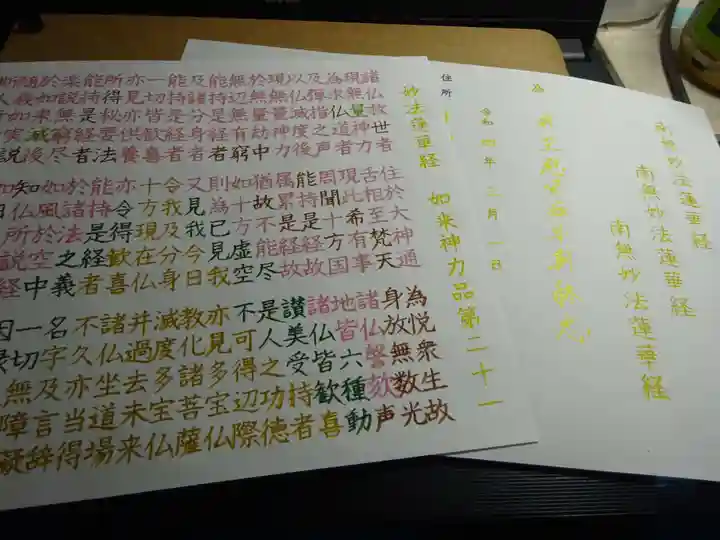 南無妙法蓮華経
南無妙法蓮華経
南無妙法蓮華経
為
令和四年三月一日
住所
妙法蓮華経 如来神力品第二十一
諸仏救世者 住於大神通 為悦衆生故
現無量神力 舌相至梵天 身放無数光
為求仏道者 現此希有事 諸仏謦欬声
及弾指之声 周聞十方国 地皆六種動
以仏滅度後 能持是経故 諸仏皆歓喜
現無量神力 属累是経故 讃美受持者
於無量劫中 猶故不能尽 是人之功徳
無辺無有窮 如十方虚空 不可得辺際
能持是経者 則為已見我 亦見多宝仏
及諸分身者 又見我今日 教化諸菩薩
能持是経者 令我及分身 滅度多宝仏
一切皆歓喜 十方現在仏 并過去未来
亦見亦供養 亦令得歓喜 諸仏坐道場
所得秘要法 能持是経者 不久亦当得
能持是経者 於諸法之義 名字及言辞
楽説無窮尽 如風於空中 一切無障礙
於如来滅後 知仏所説経 因縁